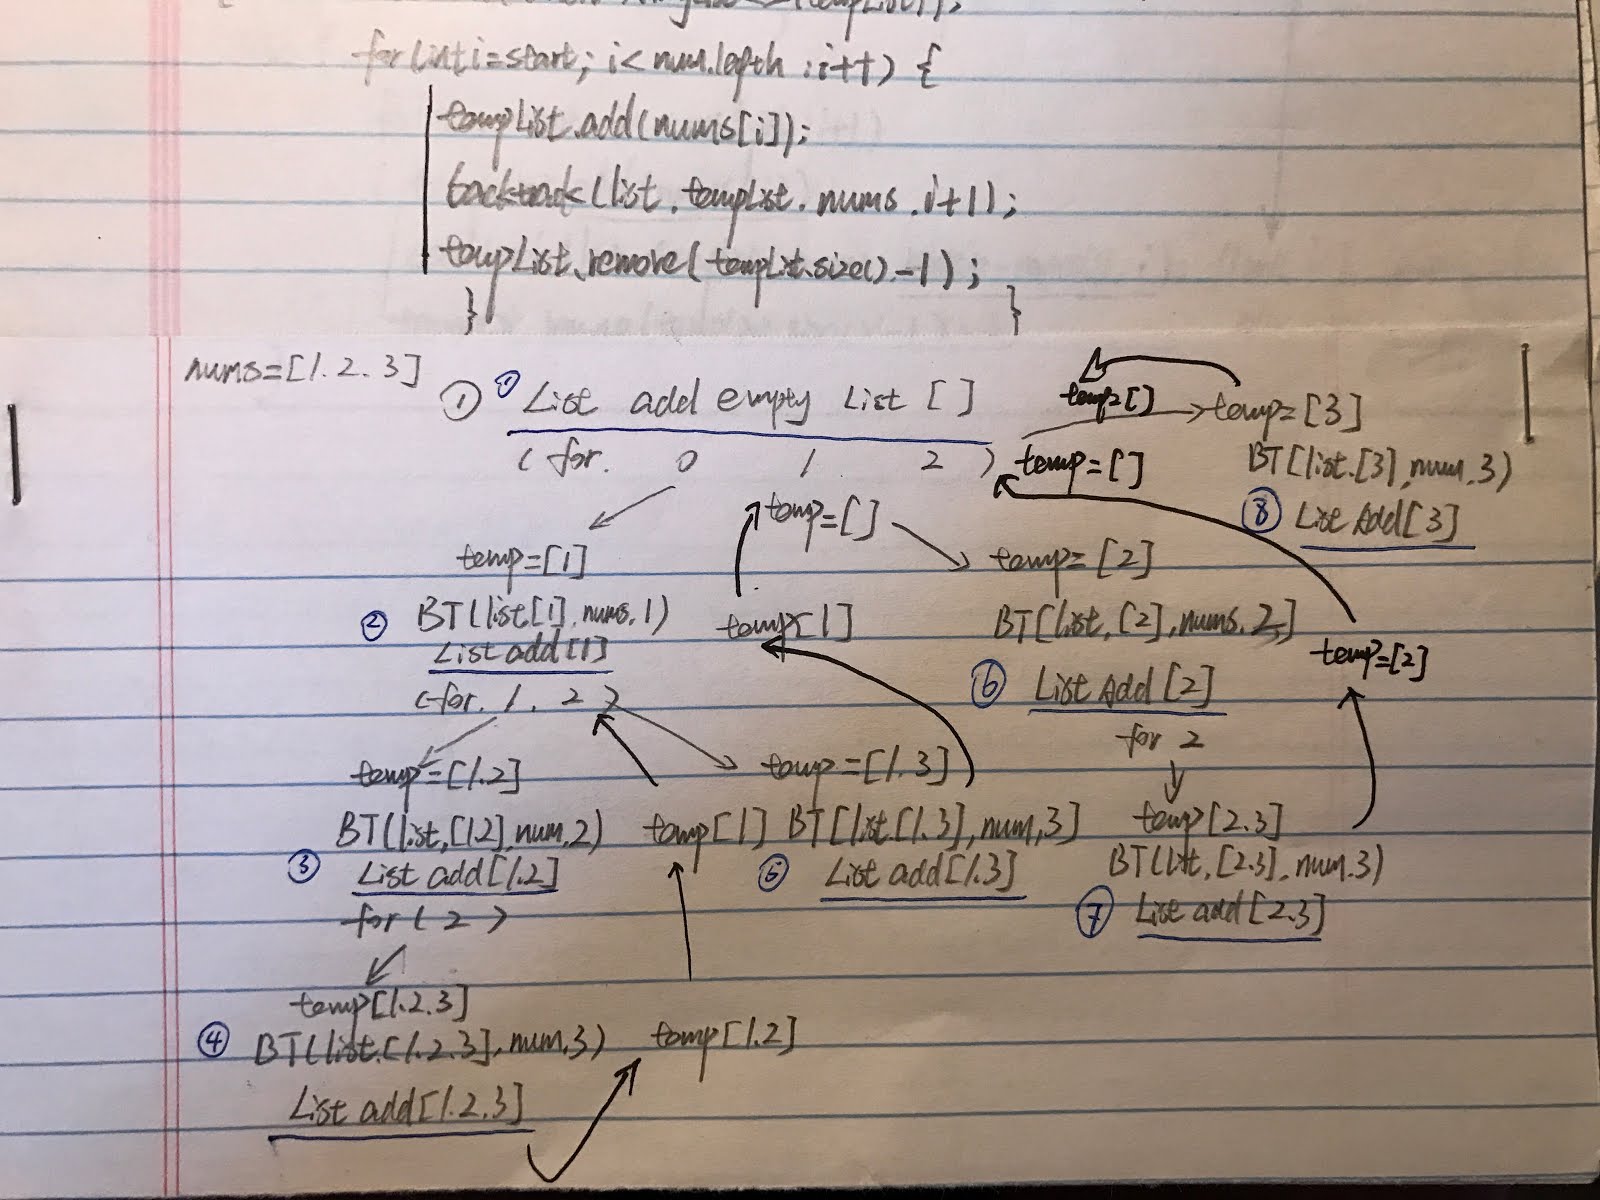 (tempList));
for (int i=start; i< num.length ; i++) {
tempList.add(nums[i]);
backtrack(list, tempList, nums, i+1);
tempList.remove(tempList.size()-1);
} }
nums=[1.2.3]
① ① List add empty List [ ]
(for. 0 1 2 )
temp=[]
temp=[]
temp=[3]
BT[list.[3],num.3)
⑧ List Add[3]
temp=[]
temp=[1]
② BT(list[1],nums,1)
List add[1]
(for. 1, 2 )
temp[1]
temp=[2]
BT[list,[2],nums.2,]
⑥ List Add [2]
for 2
temp=[2]
temp=[1.2]
BT(list,[1.2],num,2)
③ List add[1.2]
for ( 2 )
temp[1]
temp=[1.3]
BT[list.[1.3],num,3]
⑤ List add[1.3]
temp[2.3]
BT(list,[2.3],num.3)
⑦ List add[2.3]
temp[1.2.3]
④ BT(list.[1.2.3],num,3)
List add[1.2.3]
temp[1.2]